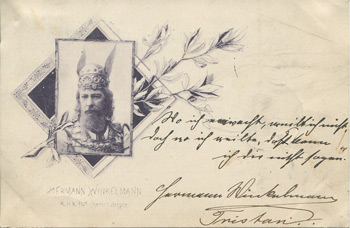 HERMANN WINKELMANN
Wo ich erwacht, weilt' ich nicht,
doch wo ich weilte, dass kann
ich dir nicht sagen.
Hermann Winkelmann
Tristan.